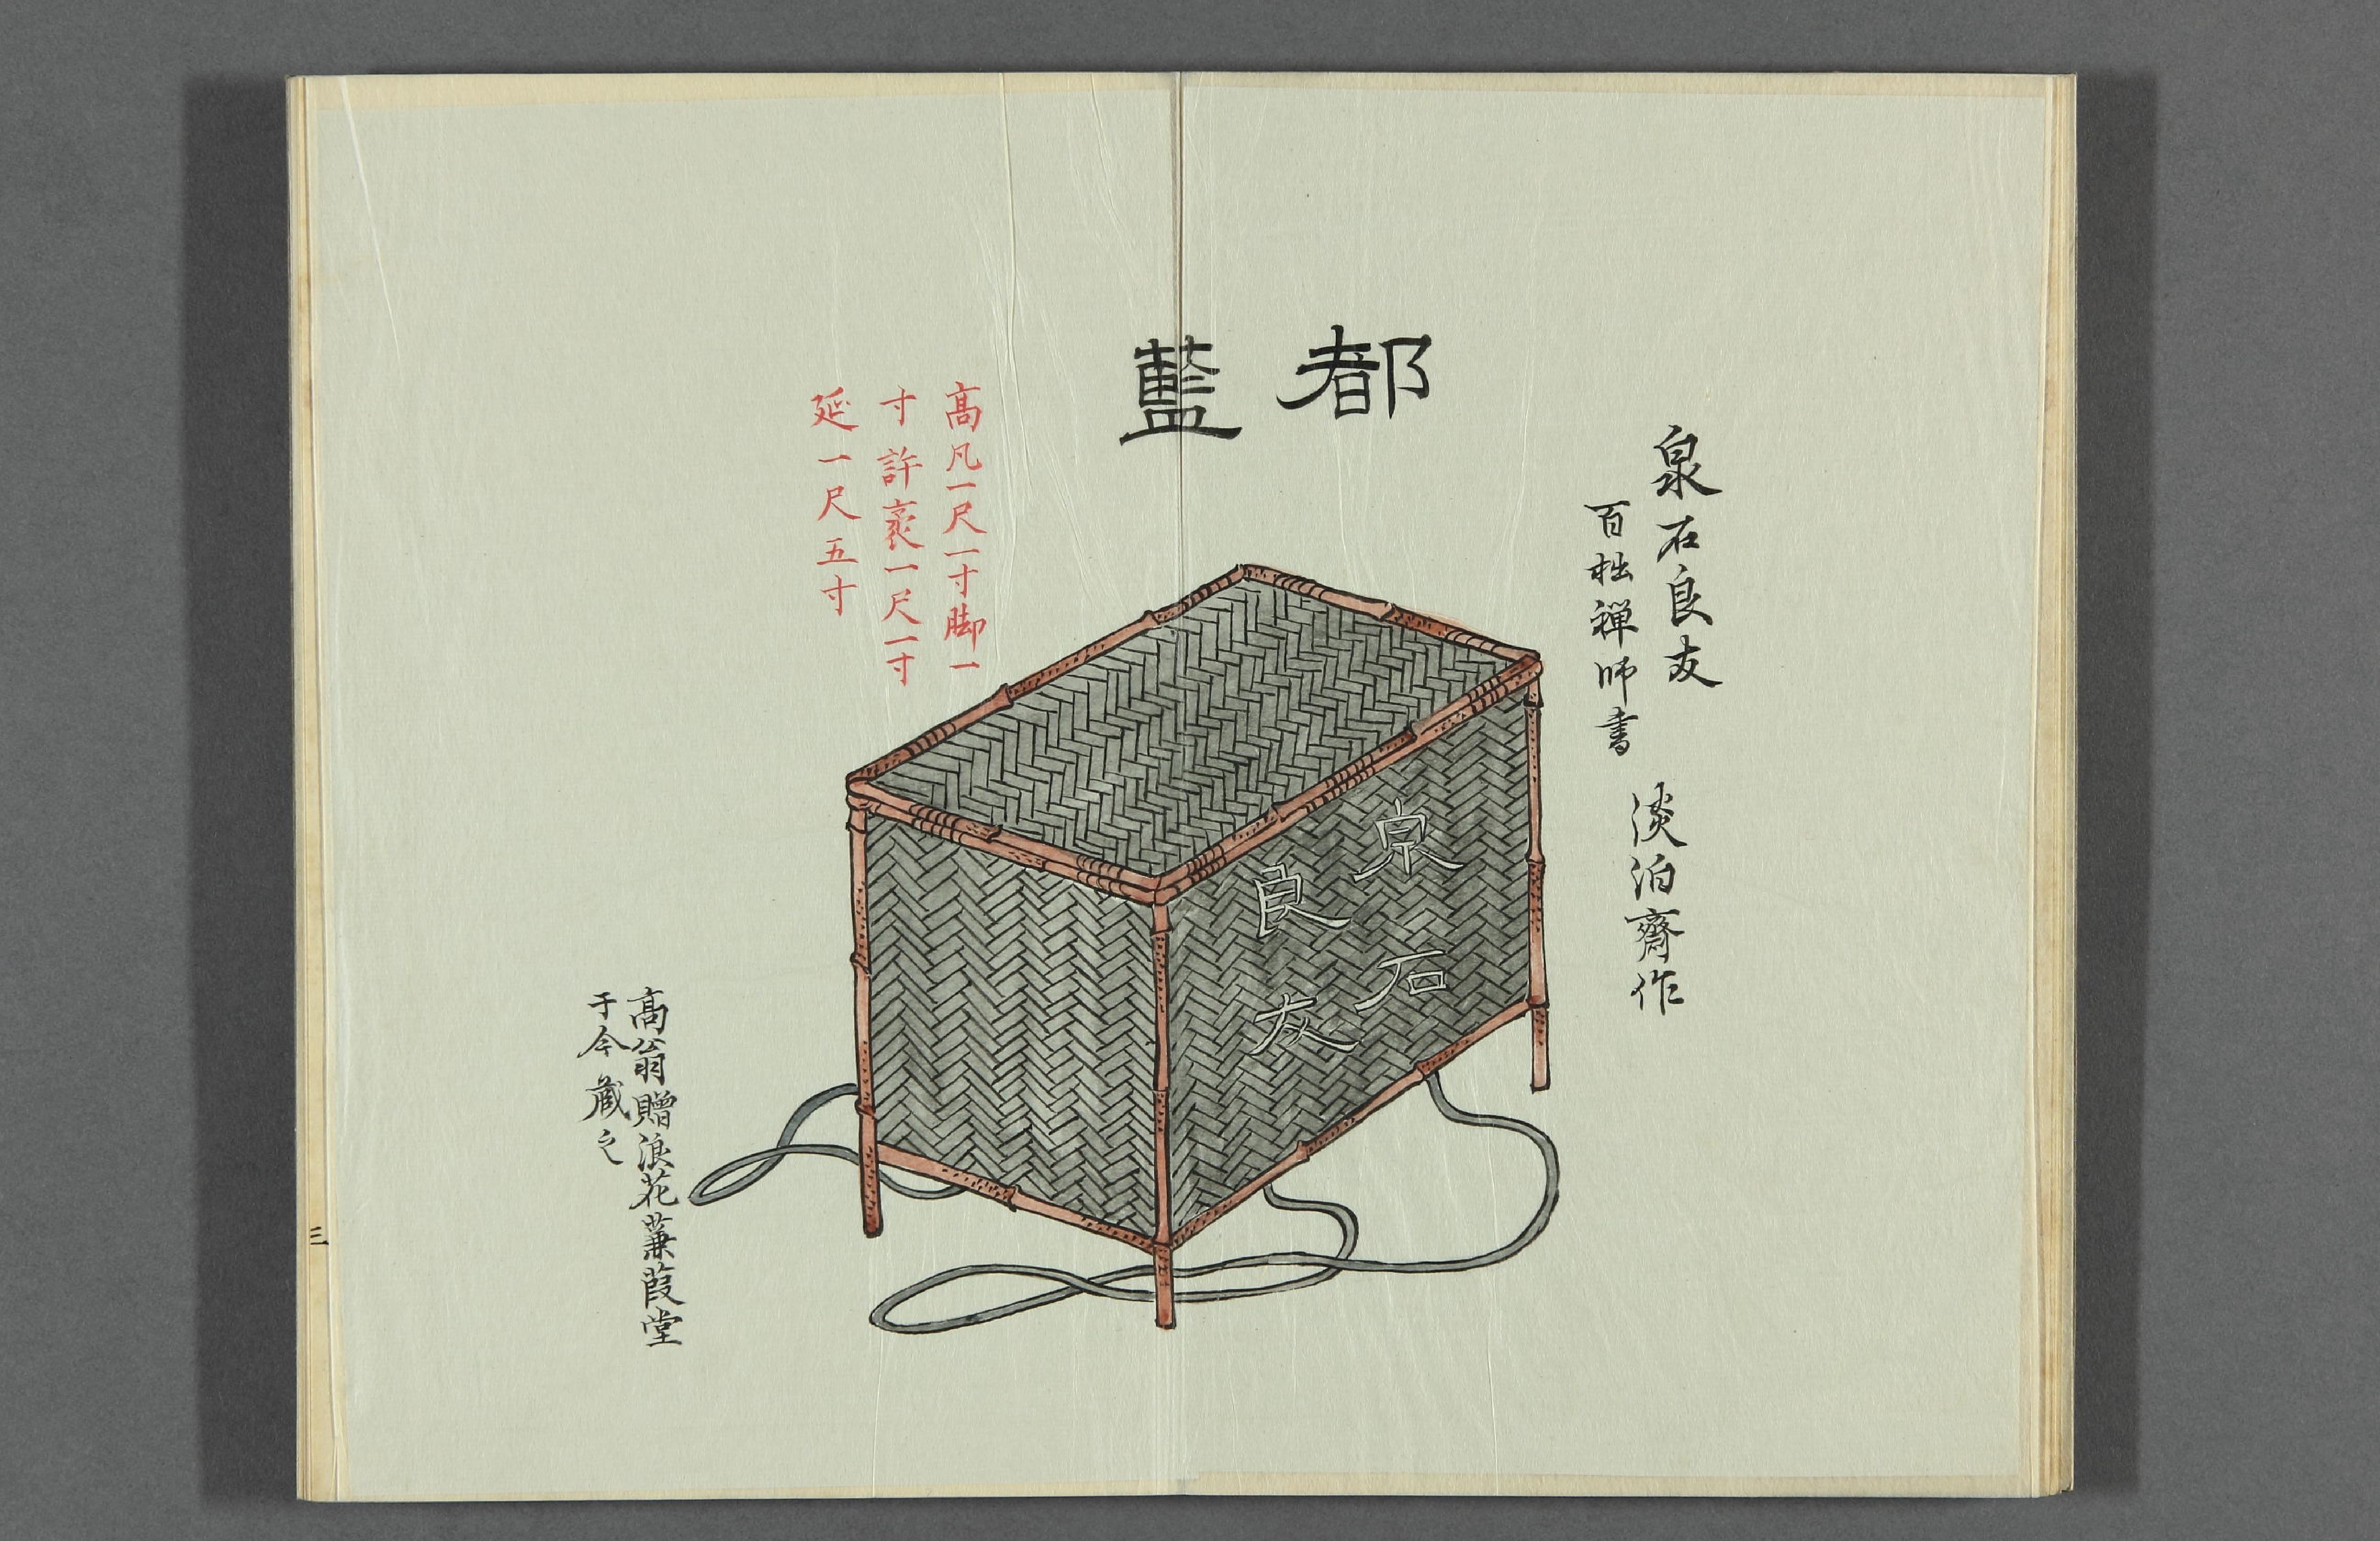 泉石良友
百拙禅師書
淡泊齋作
都藍
高凡一尺一寸脚一
寸許袤一尺一寸
延一尺五寸
泉石
良友
高翁贈浪花蒹葭堂
于今蔵之
三